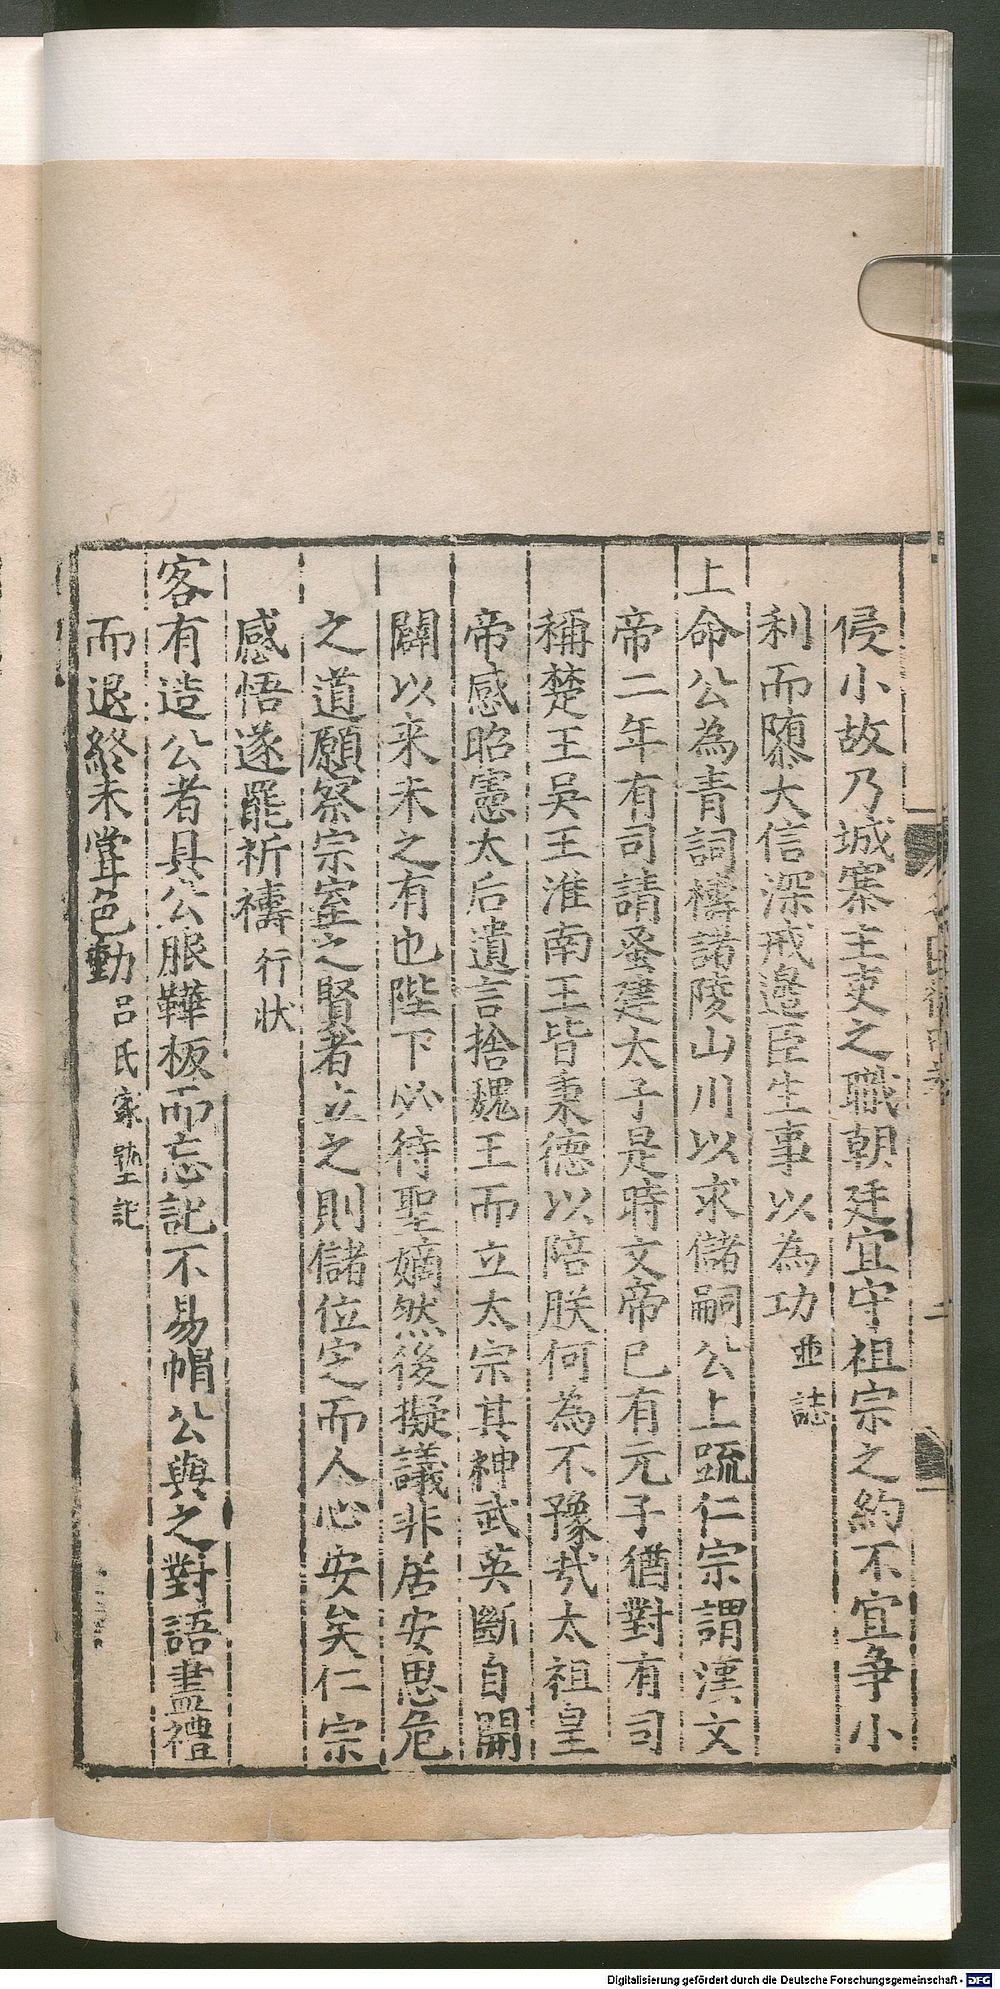 侵小故乃城寨主吏之職朝廷宜守祖宗之約不宜争小
利而隳大信深戒邉臣生事以為功並誌
上命公為青詞禱諸陵山川以求儲嗣公上䟽仁宗謂漢文
帝二年有司請蚤建太子是時文帝已有元子猶對有司
稱楚王吳王淮南王皆秉德以陪朕何為不豫㦲太祖皇
帝感昭憲太后遺言捨魏王而立太宗其神武英斷自開
闢以来未之有也陛下必待聖嫡然後擬議非居安思危
之道願察宗室之賢者立之則儲位定而人心安矣仁宗
感悟遂罷祈禱行状
客有造公者具公服鞾板而忘記不易帽公與之對語盡禮
而退終未甞色動吕氏家塾記
二
Digitalisierung gefördert durch die Deutsche Forschungsgemeinschaft - DFG